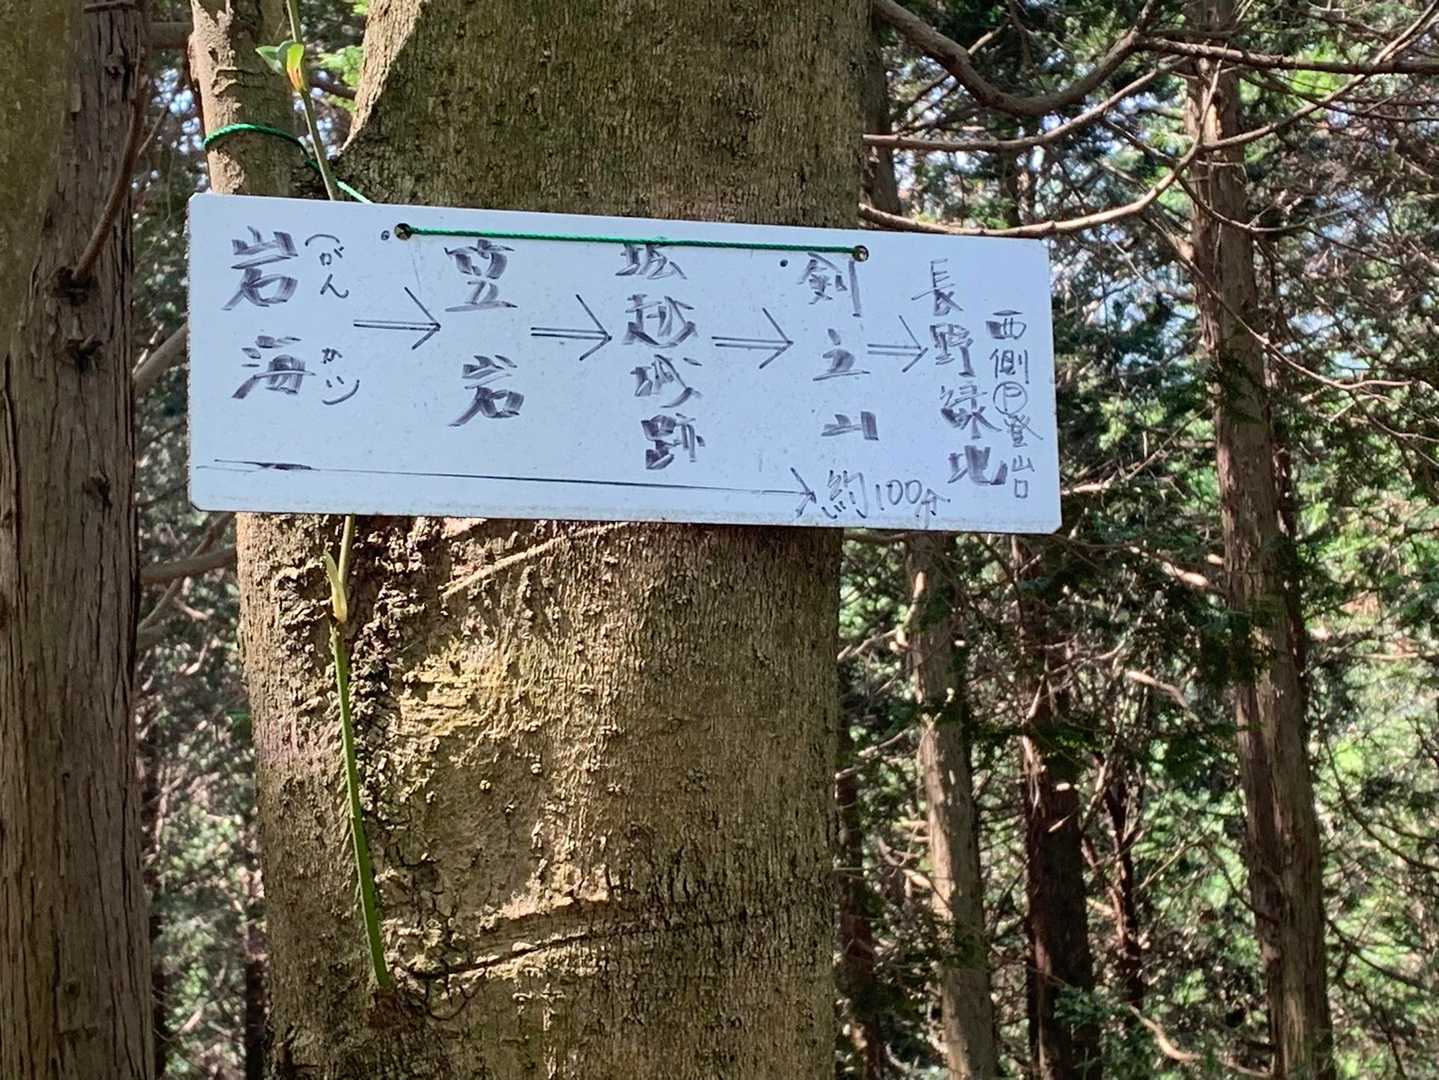 岩海
(がんかい)
⇒
笠岩
⇒
坂越城跡
⇒
剣立山
⇒
長野緑地
西側Ⓟ登山口
→約100分